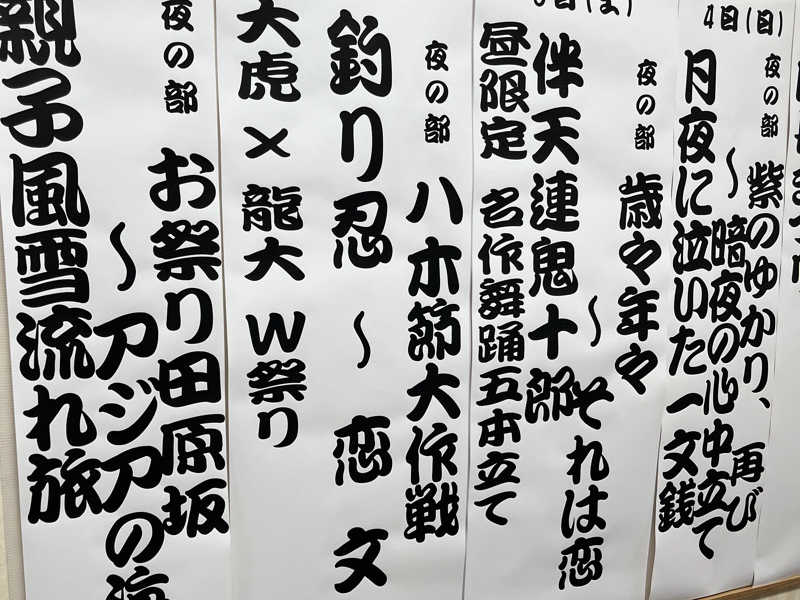 4日(日)
夜の部
紫のゆかり、再び
〜暗夜の心中立て
月夜に泣いた一文銭
夜の部
歳々年々
〜それは恋
伴天連鬼十郎
昼限定 名作舞踊五本立て
夜の部
八木節大作戦
釣り忍 〜 恋 文
大虎×龍大 W祭り
夜の部
お祭り田原坂
〜アジアの海
親子風雪流れ旅